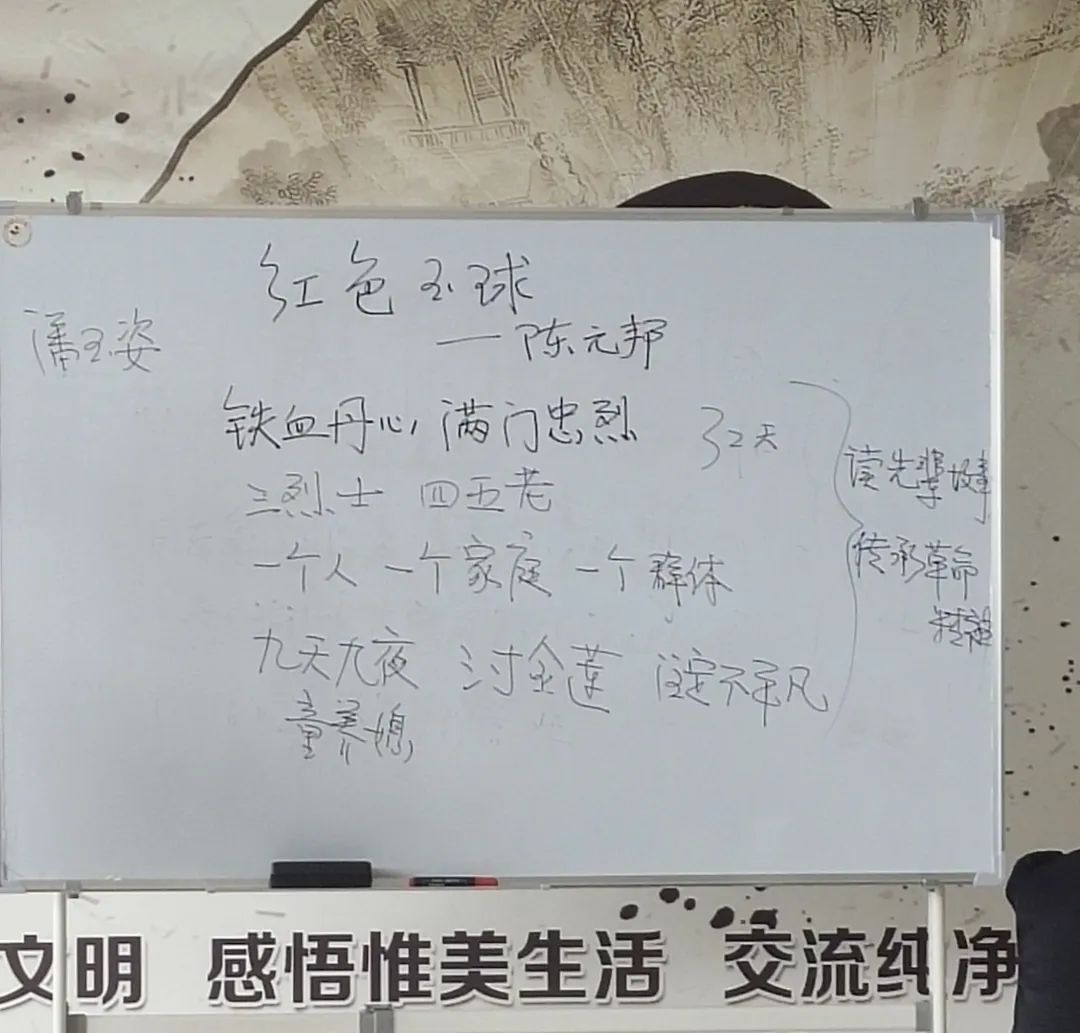 红色玉球
——陈元邦
潘玉姿
铁血丹心,满门忠烈
32天
三烈士 四五老
一个人 一个家庭 一个群体
九天九夜 讨金莲 注定不平凡
童养媳
读先辈故事
传承革命
精神
文明 感悟惟美生活 交流纯净